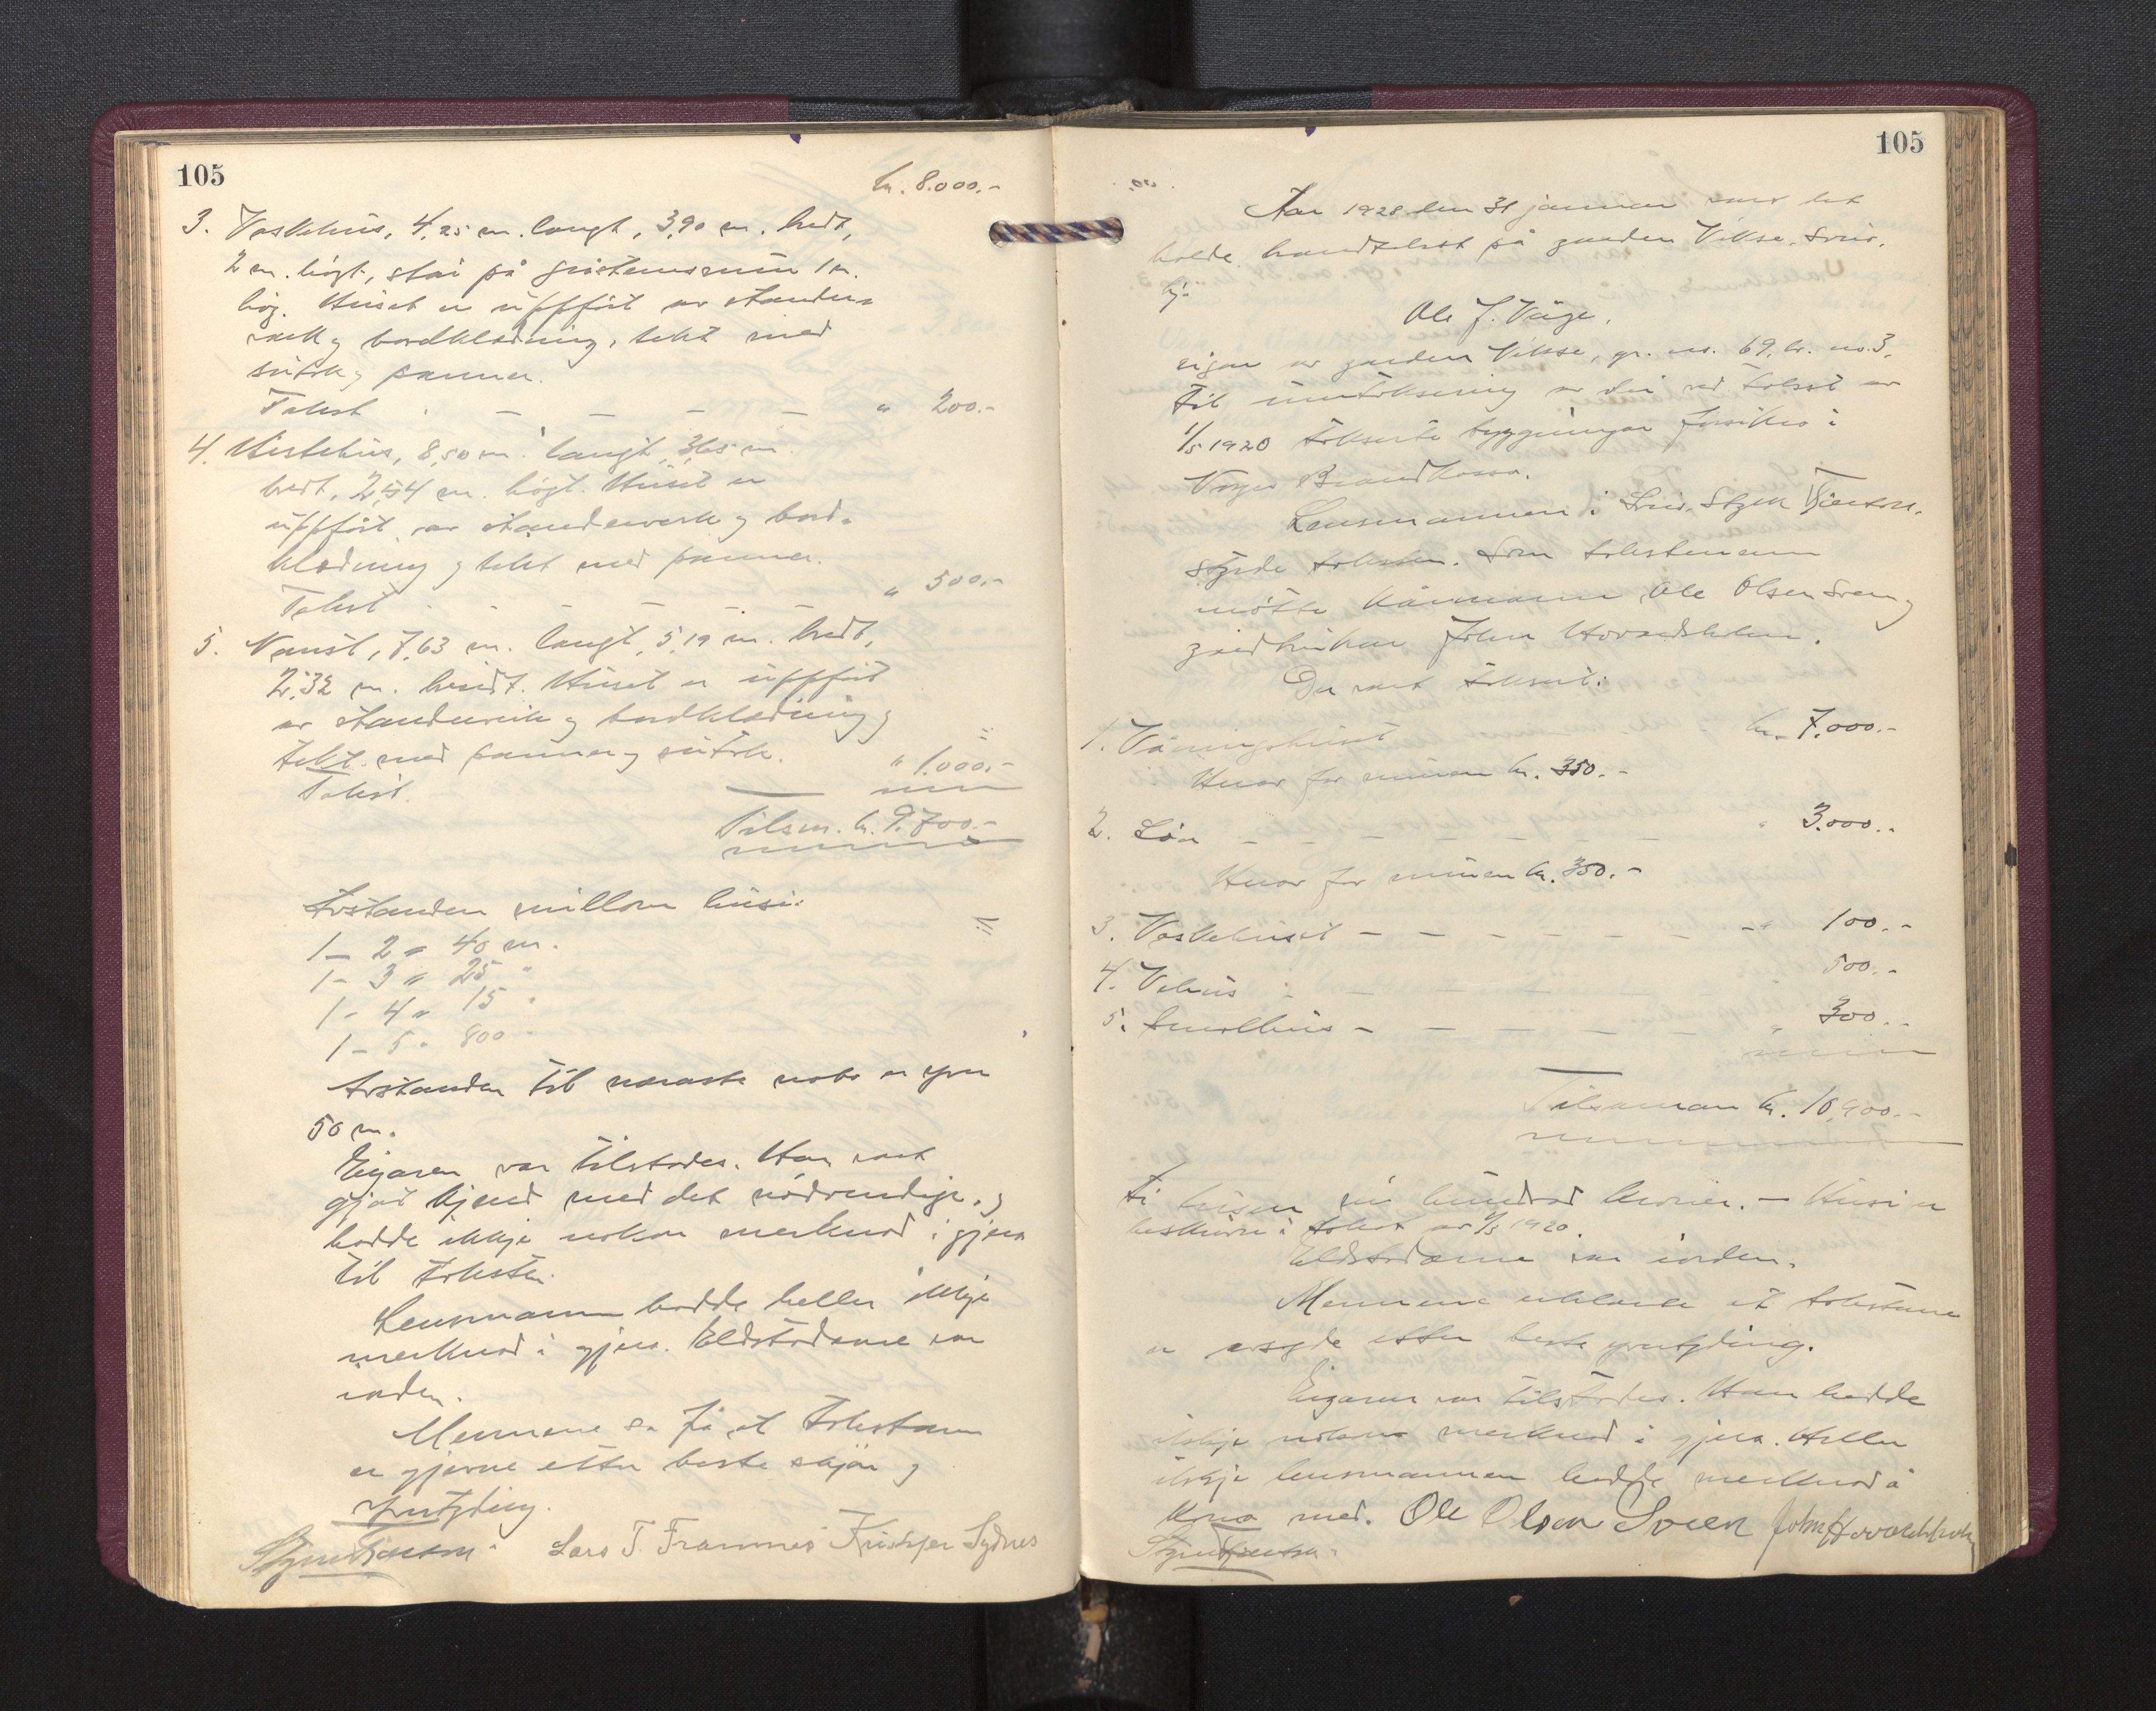 105
kr. 8.000.-
3. Vaskehus, 4,25 m. langt, 3,90 m. bredt,
2 m. högt, står på gråsteinsmur 1 m.
hög. Huset er uppført av stander-
verk og bordklædning, tekt med
sutak og panner.
Takst - - - - " 200.-
4. Hestehus, 8,50 m. langt, 3,65 m.
bredt, 2,54 m. högt. Huset er
uppført av standerverk og bord-
klædning og tekt med panner.
Takst - - - - - " 500.-
5. Naust, 7,63 m. langt, 5,19 m. bredt,
2,32 m. høidt. Huset er uppført
av standerverk og bordklædning og
tekt med panner og sutak.
Takst. " 1.000.-
Tilsm. kr. 9.700.-
Avstanden millom husi:
1 - 2 " 40 m.
1 - 3 " 25 "
1 - 4 " 15 "
1 - 5 " 800 "
Avstanden til næraste nabo er yver
50 m.
Eigaren var tilstades. Han vart
gjort kjend med det nödvendige, og
hadde ikkje nokon merknad i gjera
til taksten.
Lensmannen hadde heller ikkje
merknad i gjera. Eldstadane var
iorden.
Mennene sa frå at takstane
er gjorne etter beste skjön og
yvertyding.
Lars T. Framnes Kristofer Sydnes
105
Aar 1928 den 31 januar vart det
halde brandtakst på garden Vikse, Sveio,
hjå
Ole J. Våge,
eigar av garden Vikse, gr. no. 69, br. no. 3,
til umtaksering av dei ved takst av
1/5 1920 takserte bygningar forsikra i
Noregs Brandkassa.
Lensmannen i Sveio,
styrde taksten. Som takstmenn
møtte kårmann Ole Olsen Sveen og
gardbrukar John Hovaldsholm.
Da vart taksert:
1. Våningshuset kr. 7.000.-
Herav for muren kr. 350.-
2. Löa - - - - - - " 3.000.-
Herav for muren kr. 350.-
3. Vaskehuset - - - - - - " 100.-
4. Vehus - - - - - 500.-
5. Smalhus - - - - - " 300.-
Tilsaman kr. 10,900.-
Ti tusen ni hundrad kronur. - Husi er
beskrivne i takst av 1/5 1920.
Eldstadane var iorden.
Mennene erklærte at takstane
er avsagde etter beste yvertyding.
Eigaren var tilstades. Han hadde
ikkje nokon merknad i gjera. Heller
ikkje lensmannen hadde merknad å
koma med. Ole Olsen Sveen John Hovaldsholm